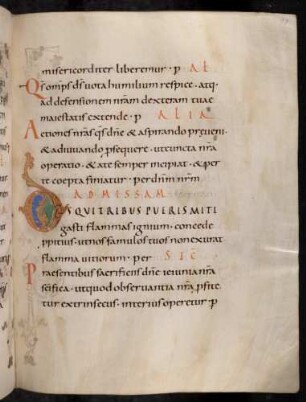 misericorditer liberemur · p Aƚ
Qs omps ds vota humilium respice · atq·
ad defensionem nram dexteram tuae
maiestatis extende · p ALIA
Actiones nras qs dne & aspirando preueni·
& adiuuando psequere · ut cuncta nra
operatio · & a te semper incipiat · & per
te coepta finiatur · per dnm nrm
AD MISSAM
DS QUI TRIBUS PUERIS MITI
gasti flammas ignium · concede
ppitius · ut nos famulos tuos non exurat
flamma uitiorum · per SEC
Praesentibus sacrificiis dne ieiunia nra
scifica · ut quod obseruantia nra pfite
tur extrinsecus · interius operetur p